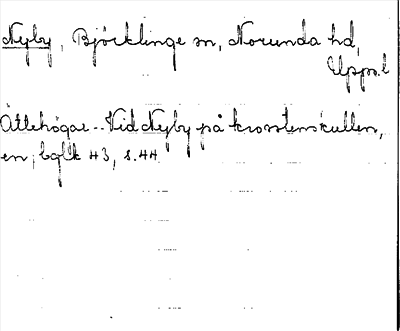 Nyby, Björklinge sn, Norunda hd,
Upps.l
Ättehögar -- Vid Nyby på krosstenskullen,
en; bglk 43, s. 44